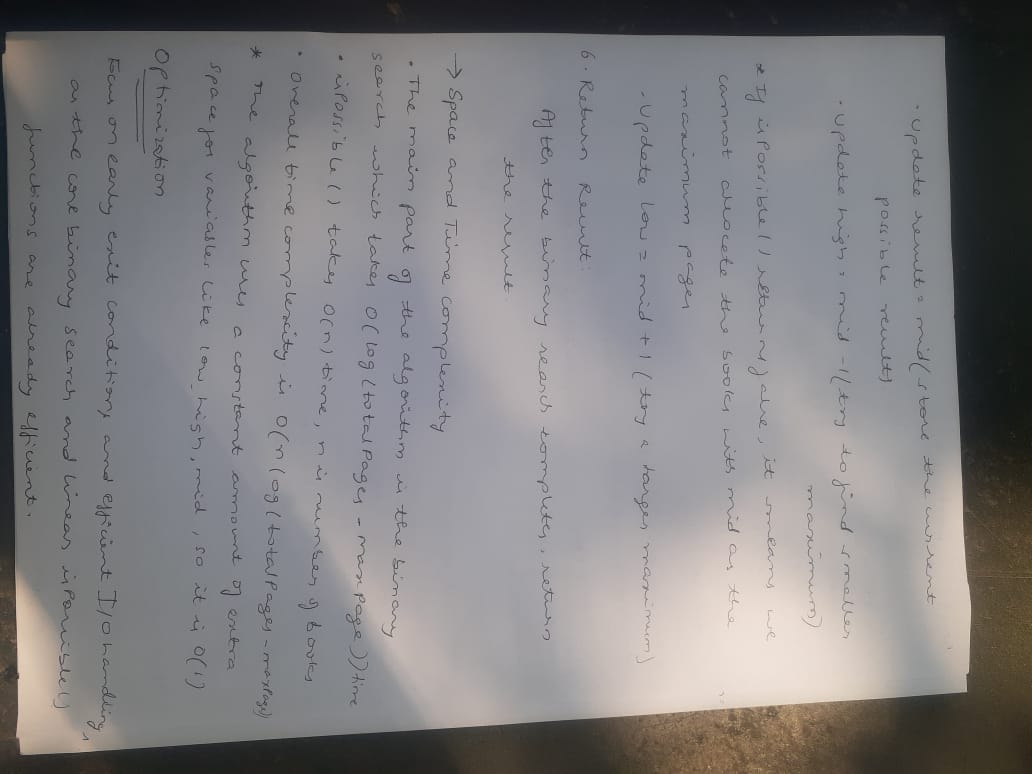 · Update result = mid (store the current
possible result)
· Update high = mid - 1 (try to find smaller
maximum)
* If isPossible() returns false, it means we
cannot allocate the books with mid as the
maximum pages
· Update low = mid + 1 (try a larger maximum)
6. Return Result:
After the binary search completes, return
the result.
→ Space and Time complexity
· The main part of the algorithm is the binary
search which takes O(log(totalPages - maxpage)) time
· isPossible() takes O(n) time, n is number of books
· Overall time complexity is O(n(log(totalPages - maxPage))
* The algorithm uses a constant amount of extra
space for variables like low, high, mid, so it is O(1)
Optimization
Focus on early exit conditions, and efficient I/O handling,
as the core binary search and linear isPossible()
functions are already efficient.